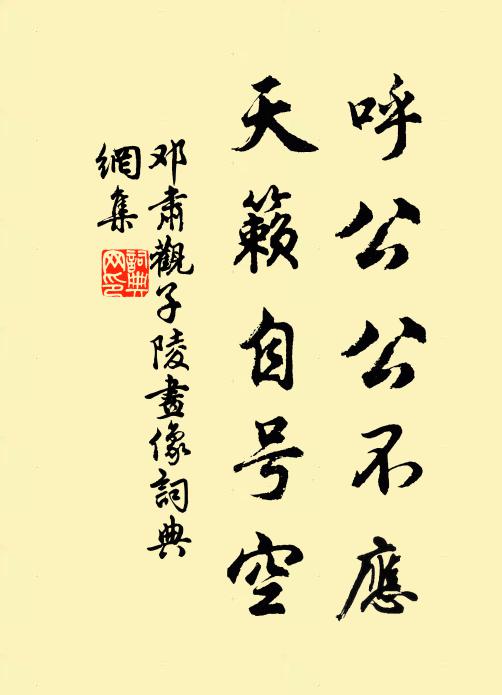 呼公公不應
天籟自号空
邓肅觀子陵畫像詞典
網集
詞典
网印